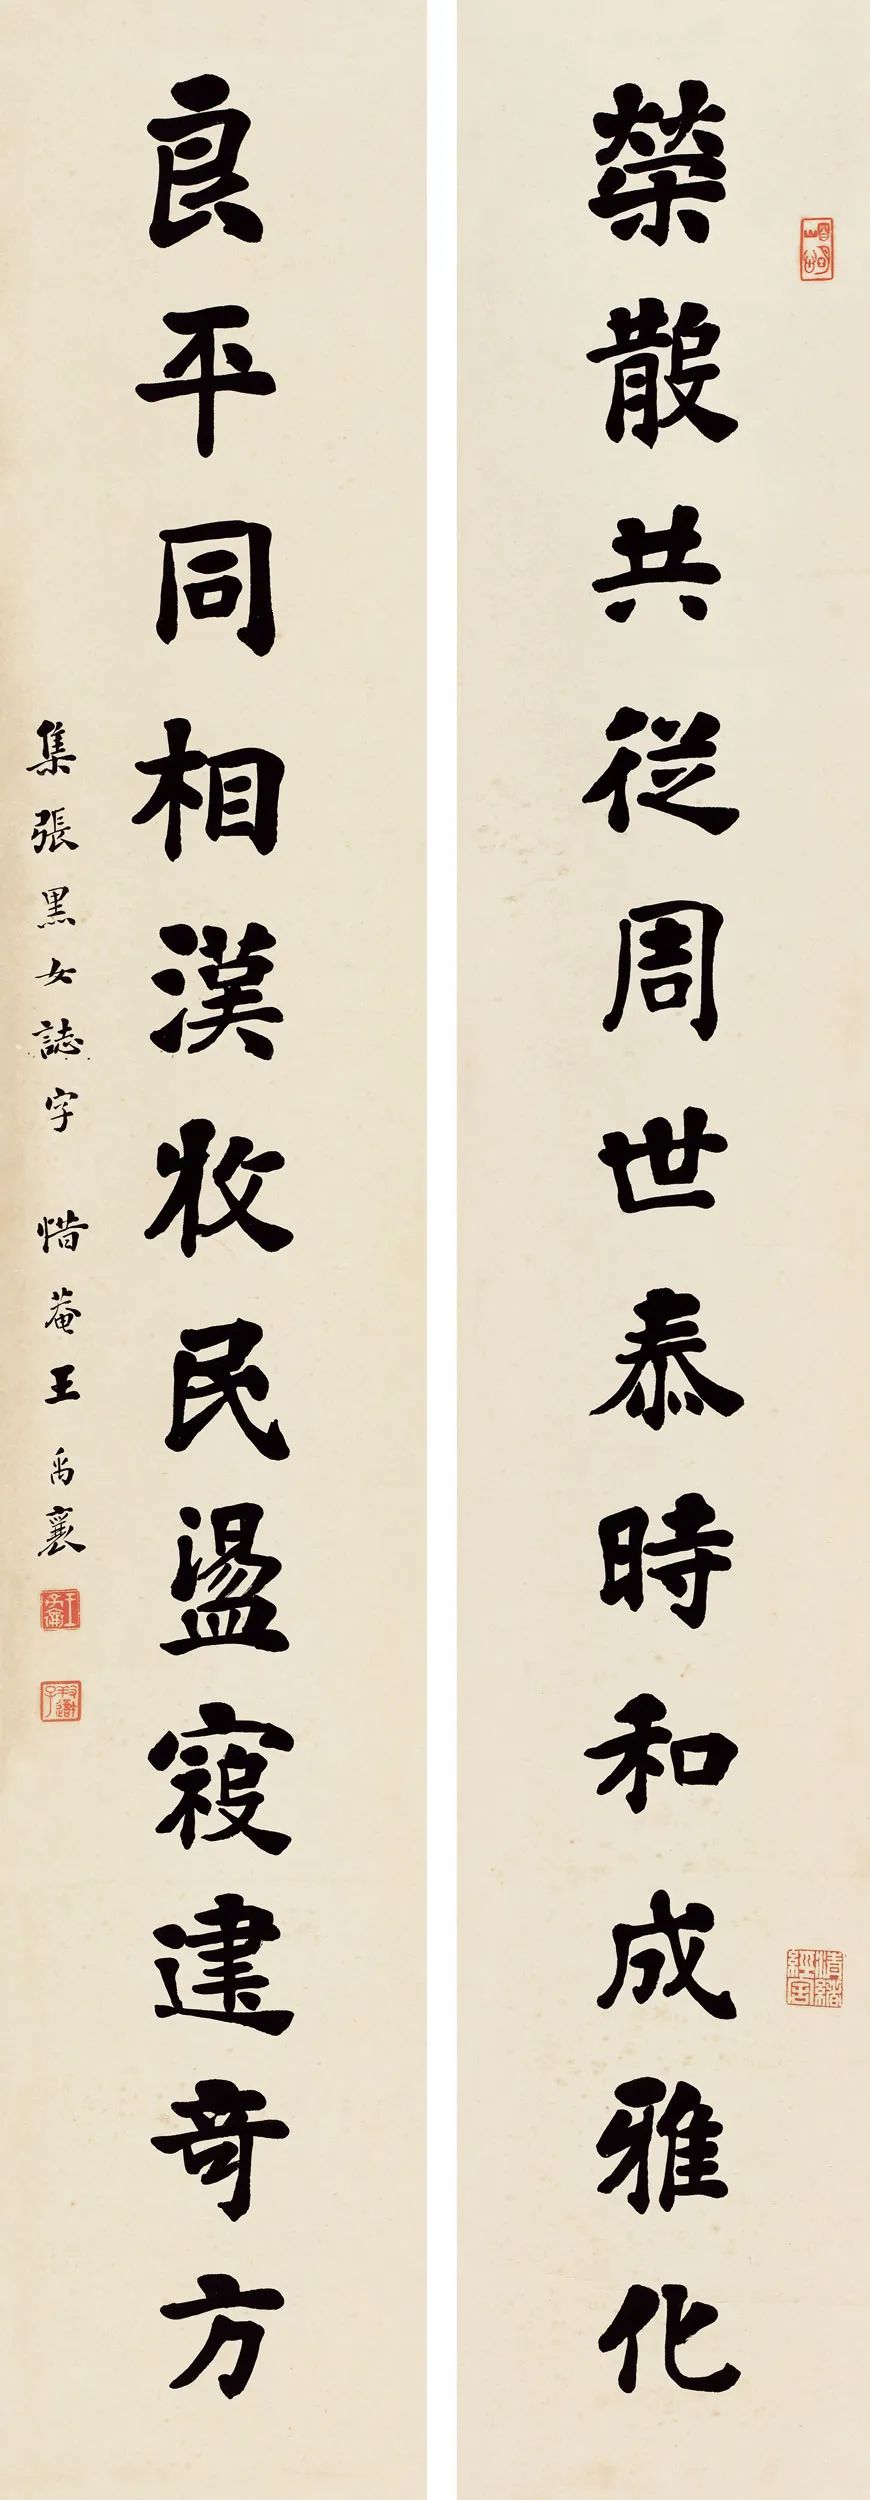 榮散共從周世泰時和成雅化
良平同相漢牧民盪寇建奇方
集張黑女誌字 惜菴王禹襄